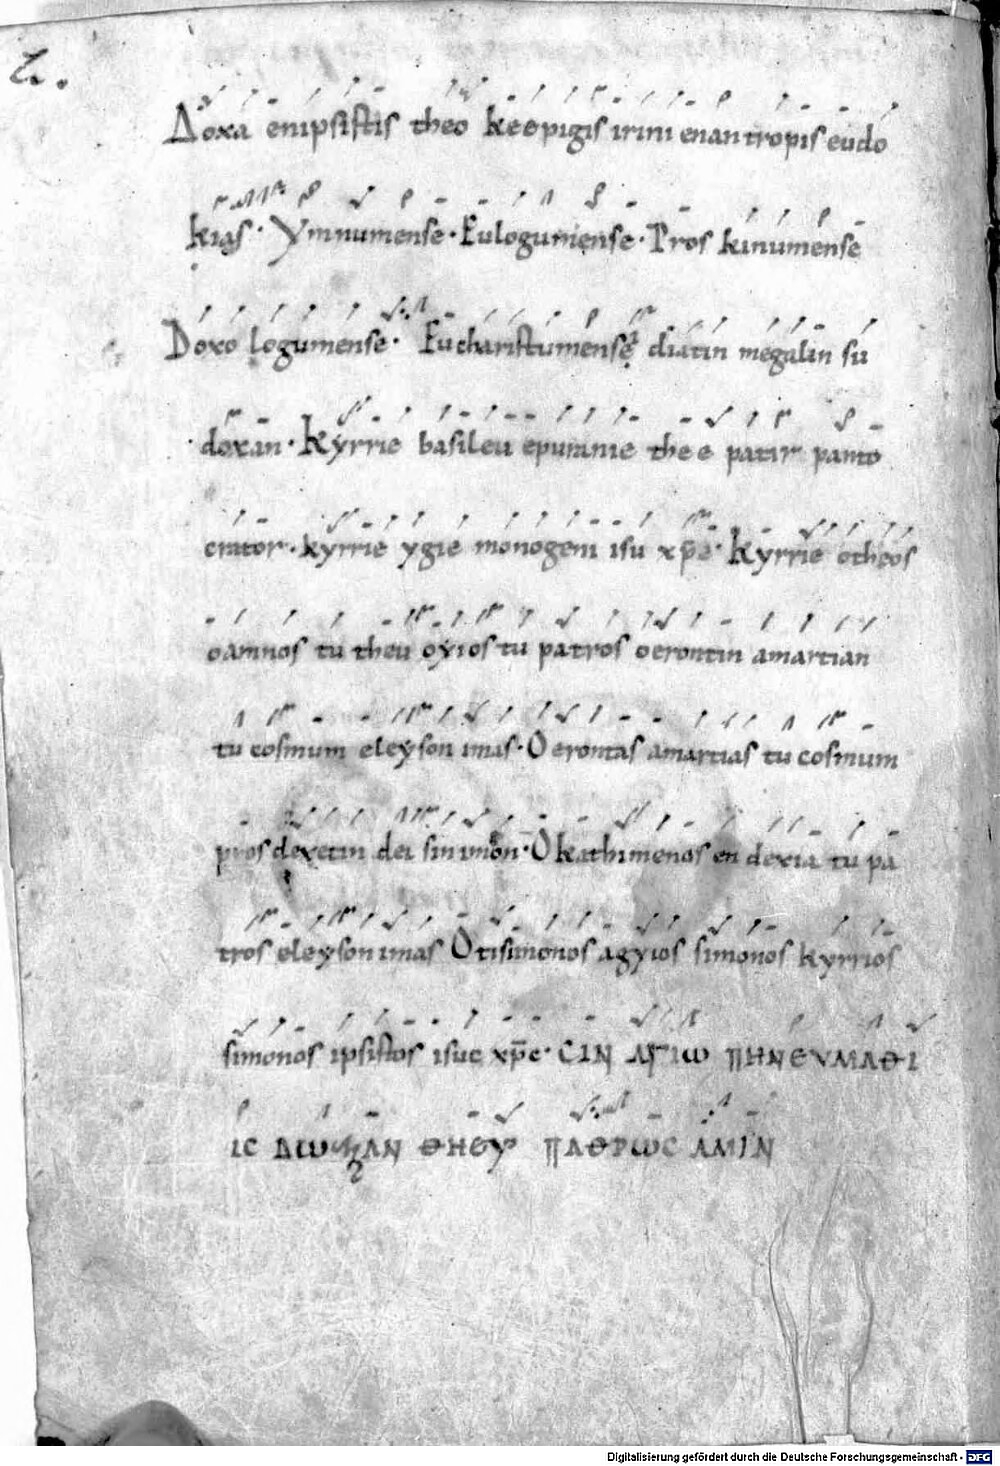 Δoxa enipsistis theo keepigis irini enantropis eudo
kias · Ymnumense · Eulogumense · Pros kinumense
Doxo logumense · Eucharistumense diatin megalin su
doxan · Kyrrie basileu epurinie thee patir panto
crator · kyrrie ygie monogeni isu xp̅e · Kyrrie otheos
oamnos tu theu oyios tu patros oerontin amartian
tu cosmum eleyson imas · O erontas amartias tu cosmum
pros dexetin dei sin imon · O kathimenos en dexia tu pa
tros eleyson imas Otisimonos agyios simonos kyrrios
simonos ipsistos isue xp̅e · CIN ΑΓΙω ΠΗΝΕΥΜΑΘΙ
ΙC ΔωΞΑΝ ΘΗΕΥ ΠΑΘΡωC ΑΜΙΝ
Digitalisierung gefördert durch die Deutsche Forschungsgemeinschaft - DFG